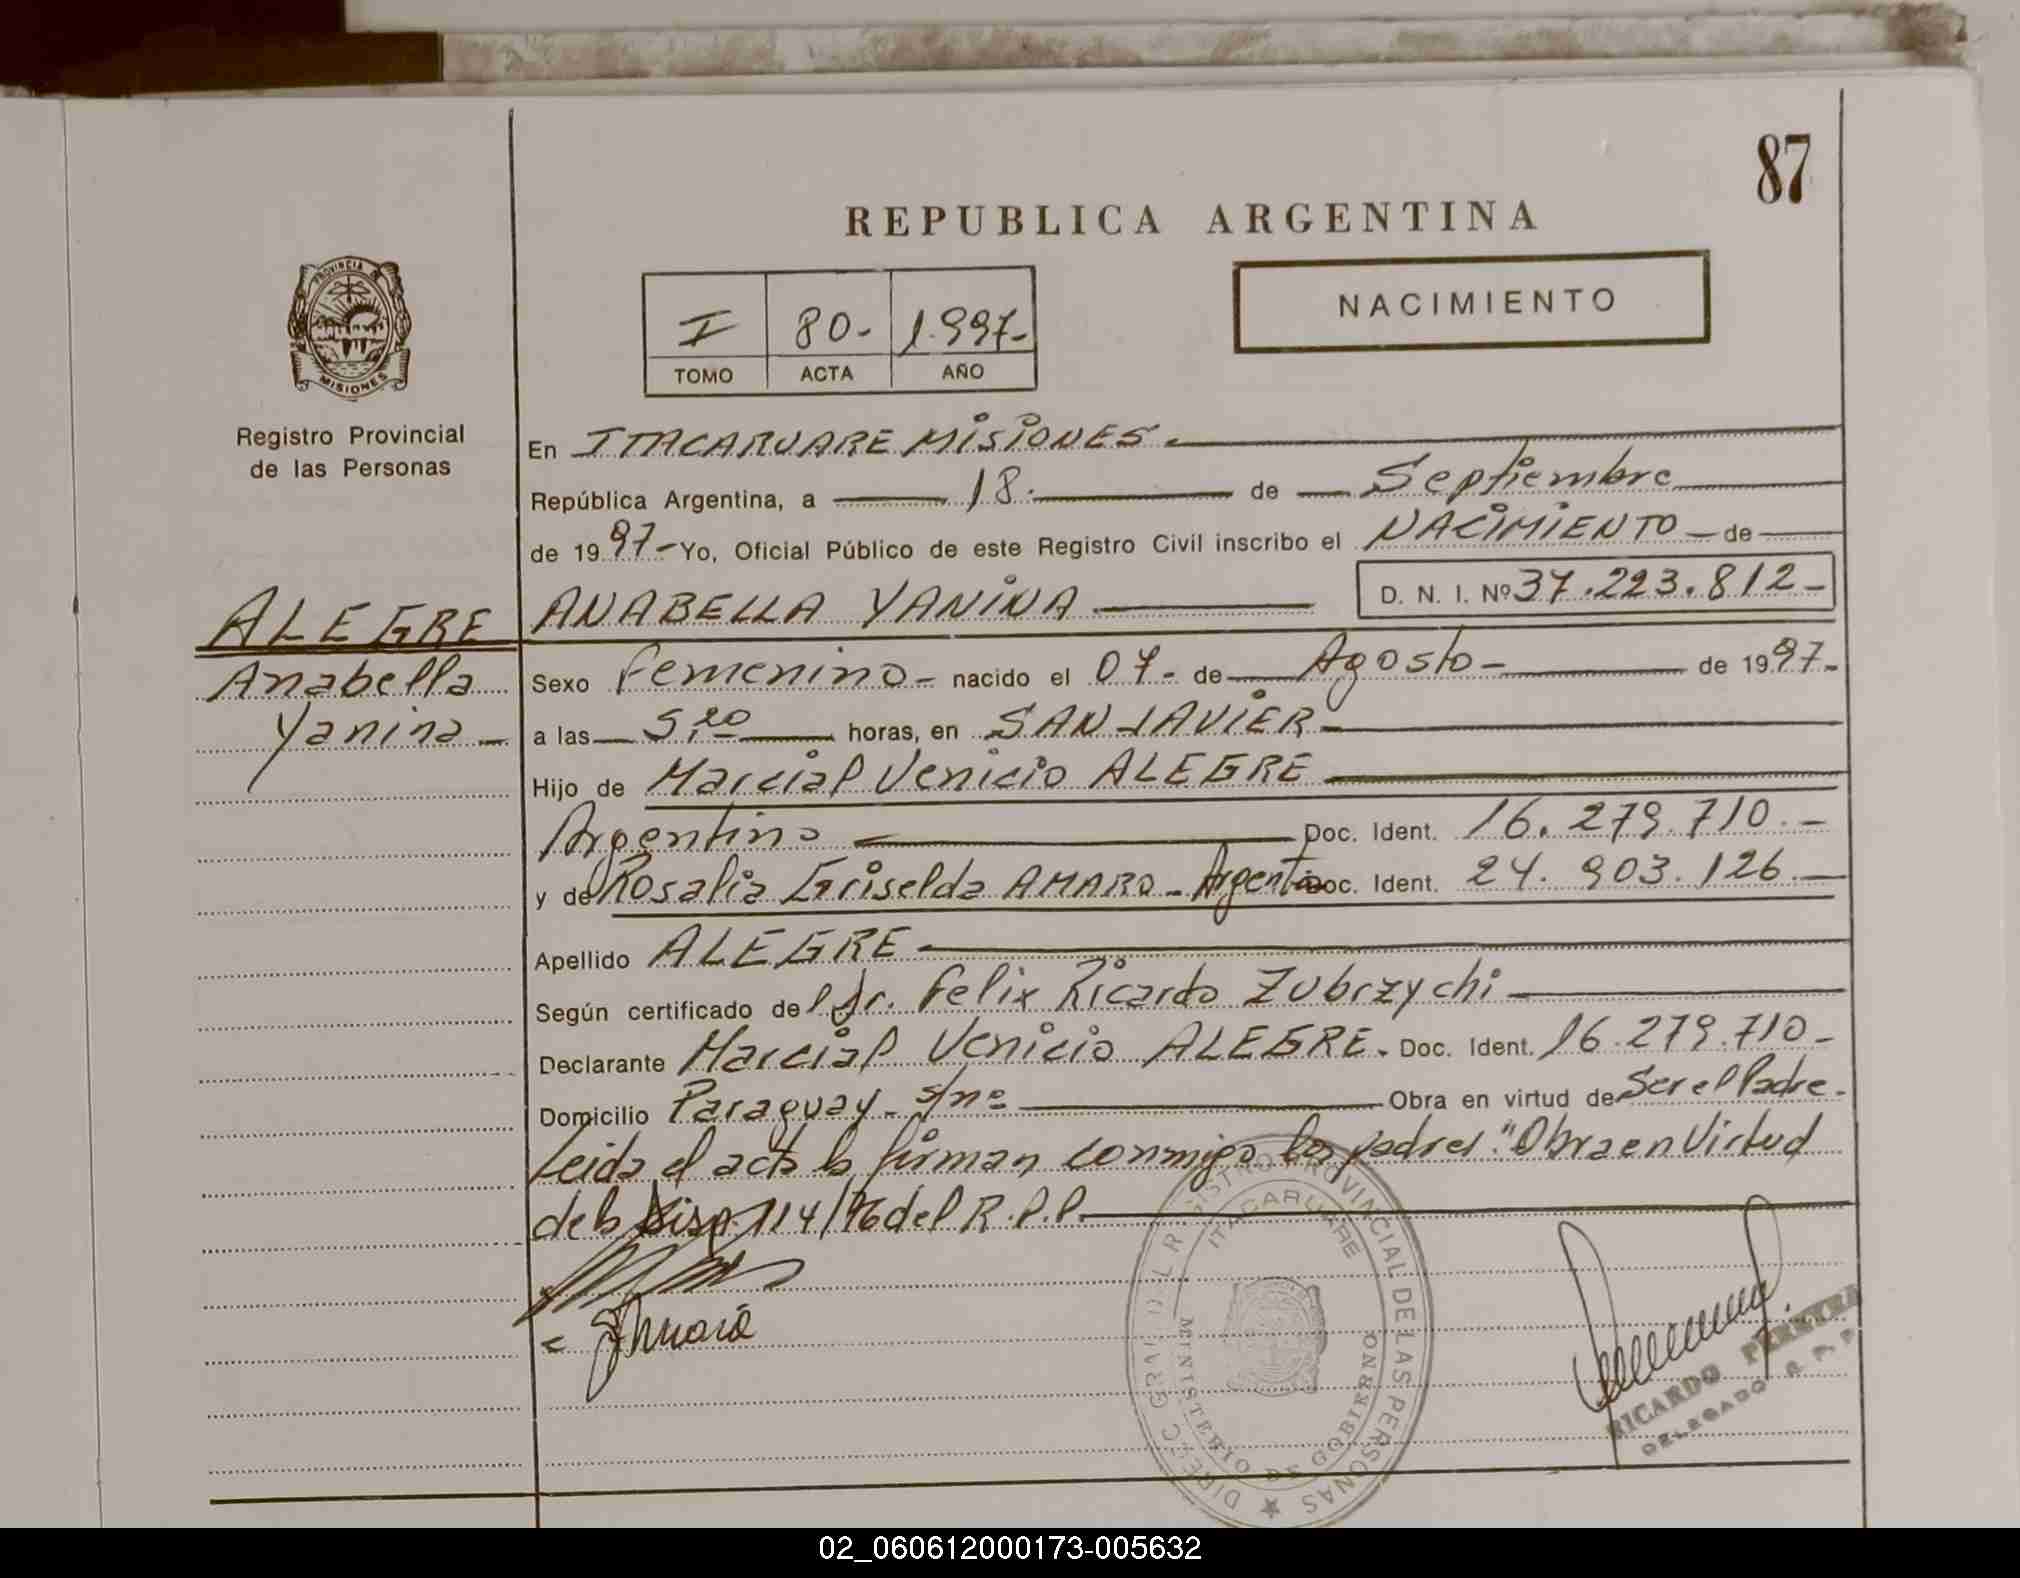 87
REPUBLICA ARGENTINA
NACIMIENTO
I 80- 1.997-
TOMO ACTA AÑO
PROVINCIA DE
MISIONES
Registro Provincial
de las Personas
ALEGRE
Anabella
Yanina
En ITACARUARE MISIONES.
República Argentina, a 18. de Septiembre
de 1997- Yo, Oficial Público de este Registro Civil inscribo el NACIMIENTO de
ANABELLA YANINA D. N. I. Nº 37.223.812-
Sexo Femenino- nacido el 07- de Agosto- de 1997-
a las 5,20 horas, en SAN JAVIER
Hijo de Marcial Venicio ALEGRE
Argentino Doc. Ident. 16.279.710.-
y de Rosalia Griselda AMARO- Argentina Doc. Ident. 24.903.126.
Apellido ALEGRE
Según certificado del Dr. Felix Ricardo Zubrzychi
Declarante Marcial Venicio ALEGRE. Doc. Ident. 16.279.710-
Domicilio Paraguay- s/nº Obra en virtud de Ser el Padre-
Leida el acta la firman conmigo los padres. "Obra en Virtud
de la Disp. 114/96 del R.P.P.
Amaro
DIREC GRAL DEL REGISTRO PROVINCIAL DE LAS PERSONAS
ITACARUARE
MINISTERIO DE GOBIERNO
RICARDO PEREYRA
DELEGADO R. P. P.
02_060612000173-005632